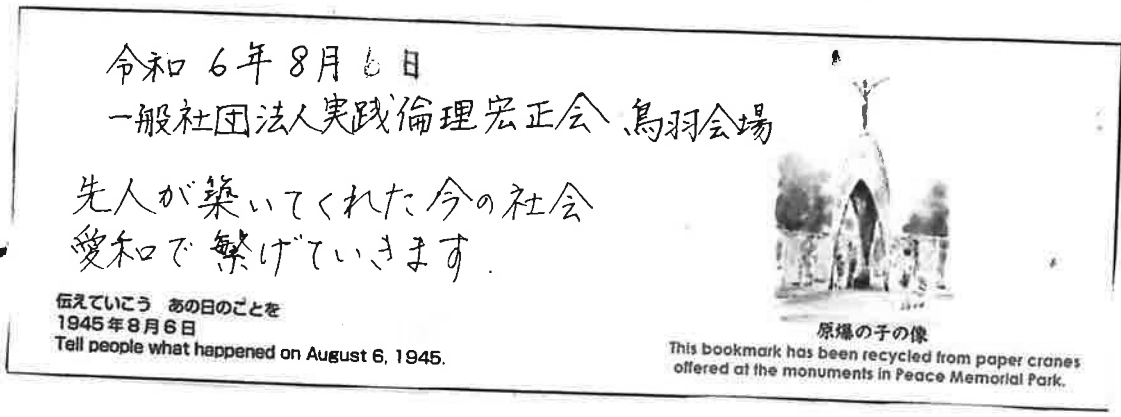 令和6年8月6日
一般社団法人実践倫理宏正会、鳥羽会場
先人が築いてくれた今の社会
愛和で繋げていきます.
伝えていこう あの日のことを
1945年8月6日
Tell people what happened on August 6, 1945.
原爆の子の像
This bookmark has been recycled from paper cranes
offered at the monuments in Peace Memorial Park.